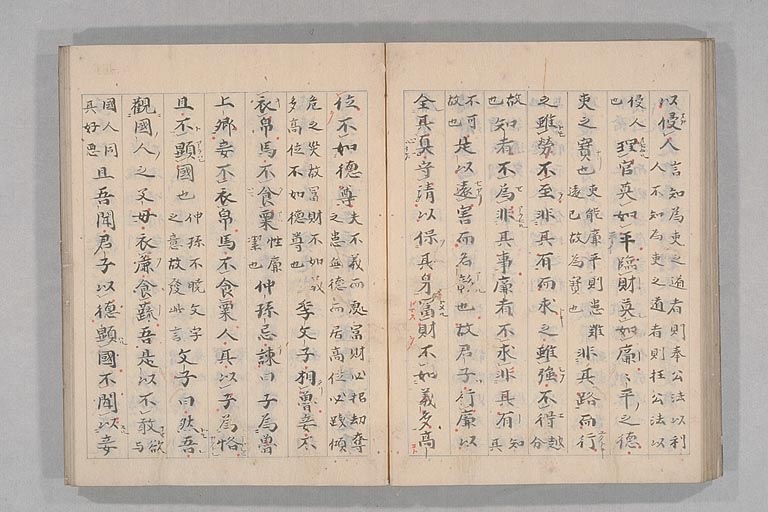 以侵人言知為吏之道者則奉公法以利
人不知為吏之道者則抂公法以
侵人也理官莫如平臨財莫如廉〻平之德
吏之寶也吏能廉平則患難遠已故為寶也非其路而行
之雖勞不至非其有而求之雖強不得越分
故也知者不為非其事廉者不求非其有知其
不可故也是以遠害而名彰也故君子行廉以
全其真守清以保其身富財不如義多高
位不如德尊夫不義而處富財必招劫奪之患無德而居高位必致傾
危之災故富財不如義多高位不如德尊也季文子相魯妾不
衣帛馬不食粟性廉潔也仲孫忌諫曰子為魯
上卿妾不衣帛馬不食粟人其以子為恡
且不顯國也仲孫不曉文子之意故發此言文子曰然吾
觀國人之父母衣麤食蔬吾是以不敢欲与
國人同其好惡且吾聞君子以德顯國不聞以妾